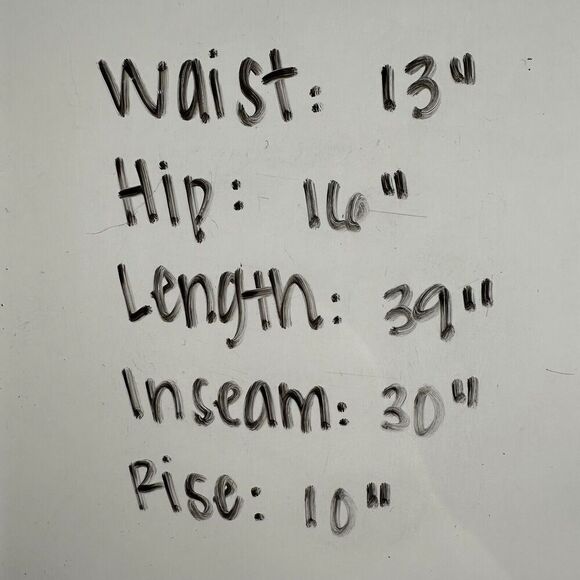 Waist: 13"
Hip: 16"
Length: 39"
Inseam: 30"
Rise: 10"